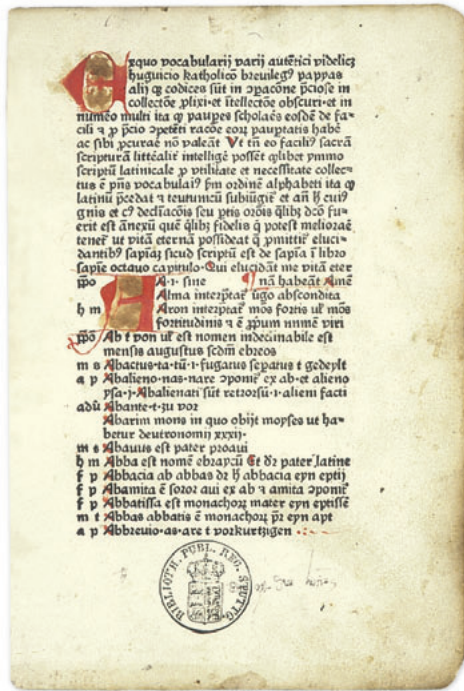 Exquo vocabularij varij autētici videlicꝫ
huguicio katholicō breuilegꝰ pappas
alij qꝫ codices sūt in ꝯꝑacōne p̄ciose in
collectōe ꝓlixi et ītellectōe obscuri et in
numeo multi ita qꝫ paupes scholaēs eosdē de fa
cili ⁊ ꝓ p̄cio ꝯpetēti racōe eoꝝ paupratis habē
ac sibi ꝓcurae nō valeāt Vt tn̄ eo facili sacrā
scripturā litt̄alit̄ intelligē possēt qͥlibet ymmo
scriptū latinicale ꝓ vtilitate et necessitate collec
tus ē p̄ns vocabulaiꝰ ẜm ordinē alphabeti ita qꝫ
latinū p̄cedat ⁊ teutunicū subiūgit̄ et an̄ cui
gnis et cꝰ decl̄iacōis seu ptis orōis qͥlibꝫ dcō fu
erit est ānexū que q̄libꝫ fidelis qͥ potest melioraē
tenet̄ ut vitā eternā possideat qͣ ꝓmittit̄ eluci
dantibꝰ sapiāꝫ sicud scriptū est de sapīa ī libro
sapīe octauo capitulo Qui elucidāt me vitā eter
ꝓpo A i sine nā habeāt Amē
Alma interp̄tat̄ v̄go abscondita
h m Aron interp̄tat̄ mōs fortis ul̄ mōs
fortitudinis ⁊ ē ꝓpum nomē viri
ꝓpō Ab t von ul̄ est nomen indeclinabile est
mensis augustus scdm̄ ebreos
m s Abactus ta tū i fugatus sepatus t gedeylt
a p Abalieno nas nare ꝯponit̄ ex ab et alieno
ysa i Abalienati sūt retrorsū i alieni facti
adū Abante t zu vor
Abarim mons in quo obijt moyses ut ha
betur deutronomij xxxij
m s Abauus est pater proaui
h m Abba est nomē ebraycū Et dr̄ pater latine
f p Abbacia ab abbas dr̄ abbacia eyn eptij
f p Abamita ē soror aui ex ab ⁊ amita ꝯponit̄
f p Abbatissa est monachoꝝ mater eyn eptissē
m t Abbas abbatis ē monachoꝝ pr̄ eyn apt
a p Abbreuio as are t vorkurtzigen
BIBLIOTH. PUBL. REG. STUTTG.